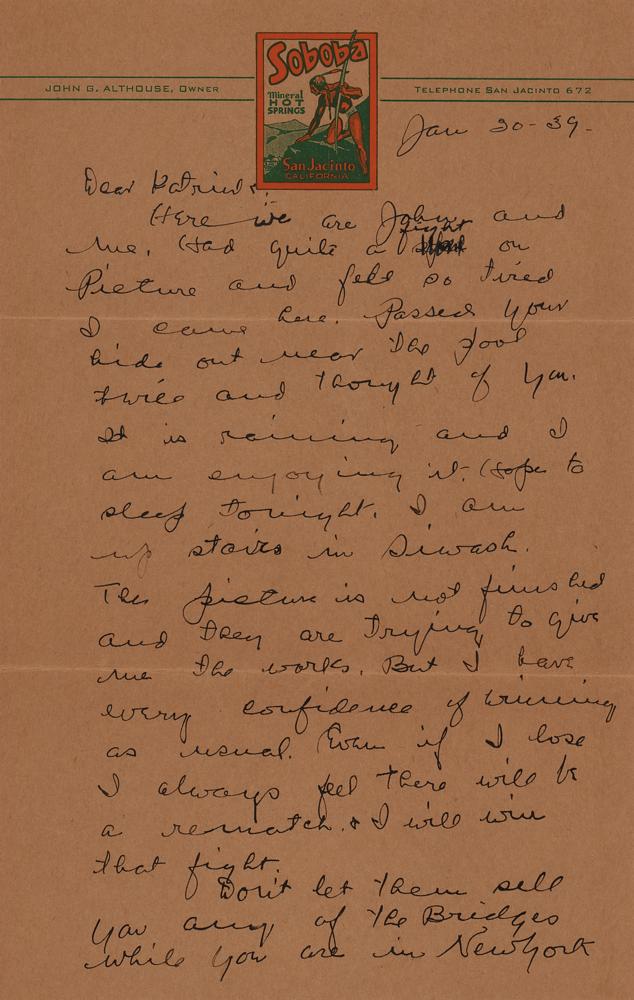 Soboba
JOHN G. ALTHOUSE, OWNER
TELEPHONE SAN JACINTO 672
Mineral
HOT
SPRINGS
San Jacinto
CALIFORNIA
Jan 30-39-
Dear
Here we are John and
me. Had quite a fight on
Picture and felt so tired
I came here. Passed your
hide out near the pool
twice and thought of you.
It is raining and I
am enjoying it. Hope to
sleep tonight. I am
up stairs in Siwash.
The picture is not finished
and they are trying to give
me the works. But I have
every confidence of winning
as usual. Even if I lose
I always feel there will be
a rematch & I will win
that fight.
Don't let them sell
you any of the Bridges
while you are in New York